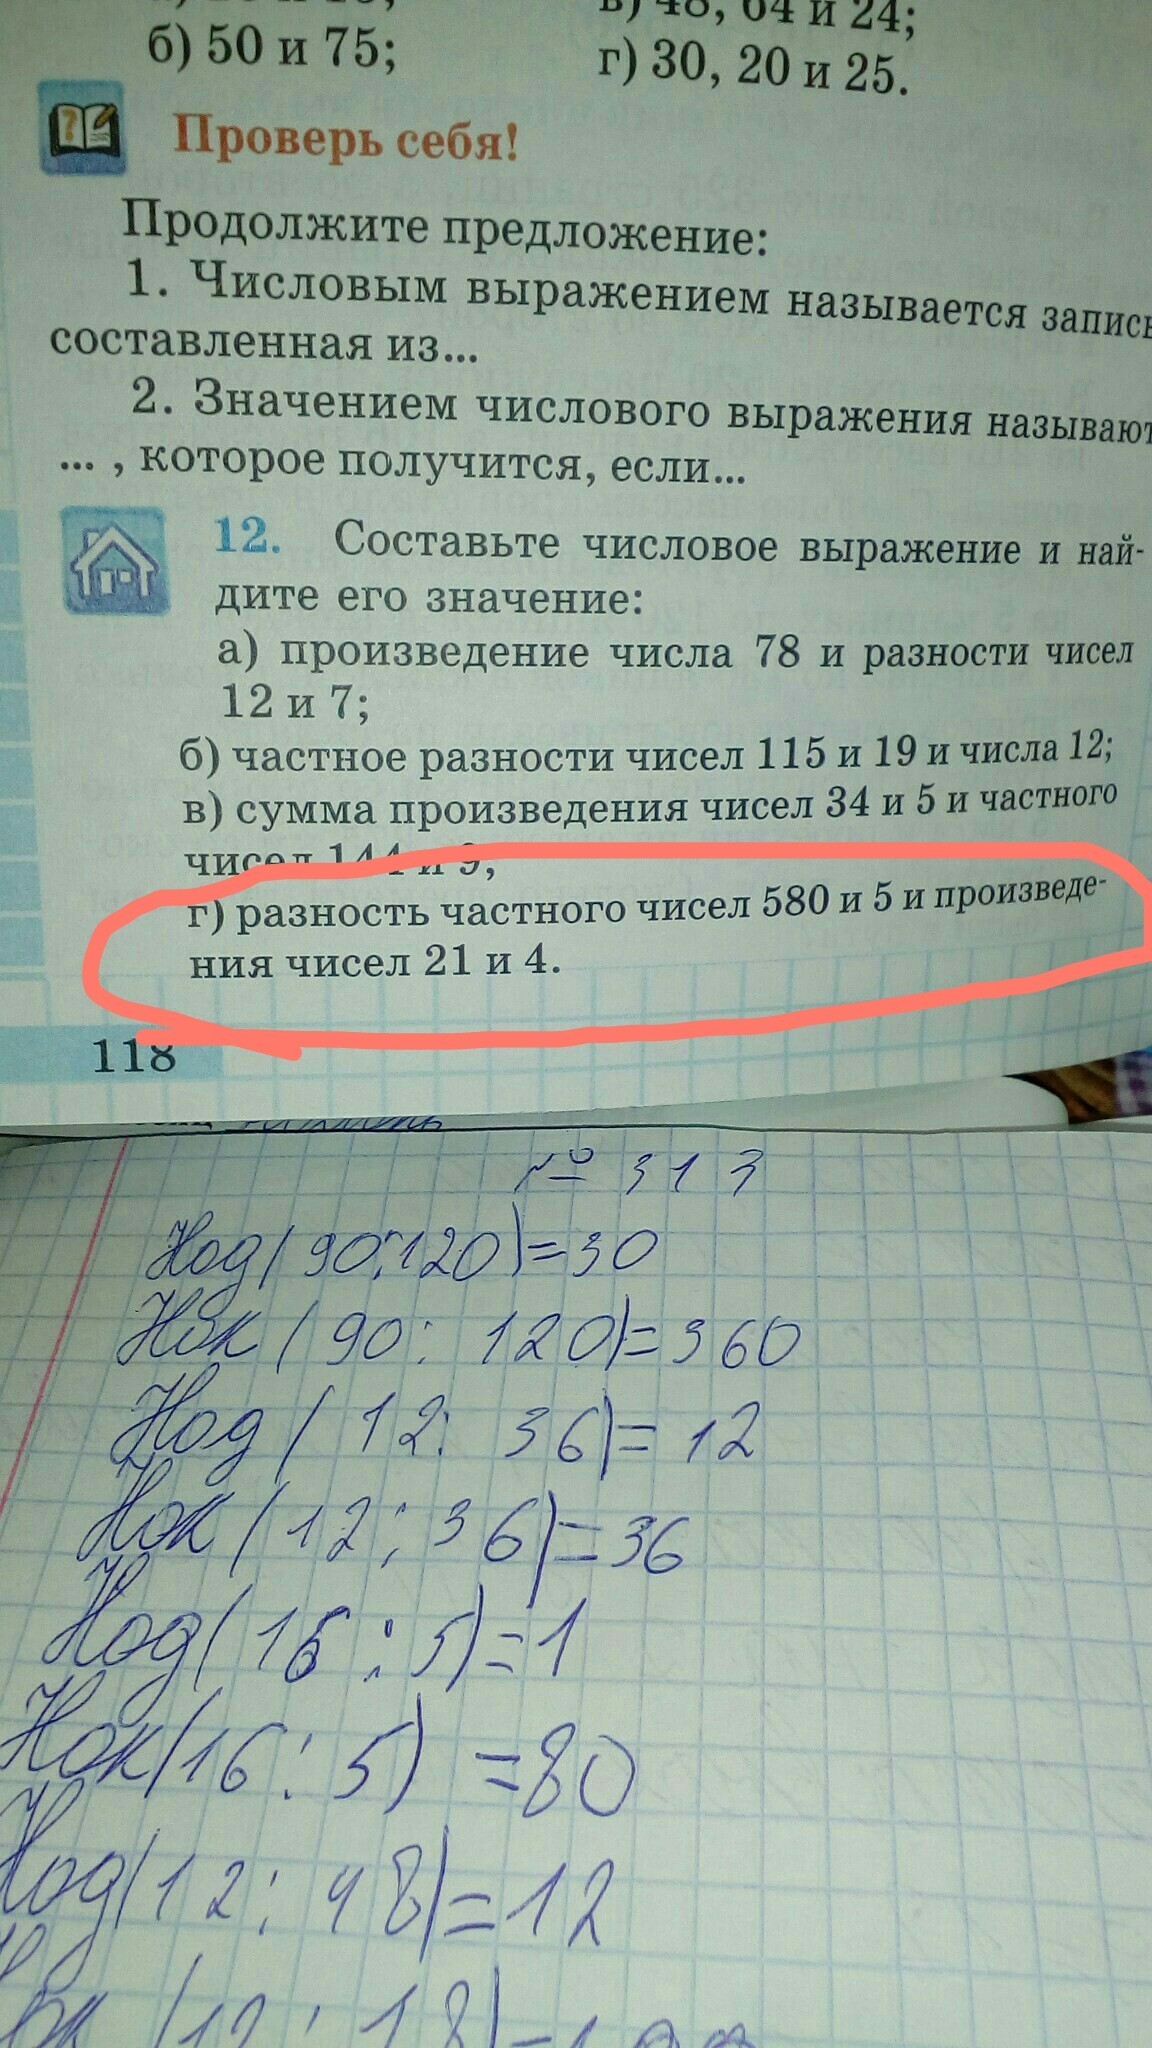 в) 48, 64 и 24;
б) 50 и 75;
г) 30, 20 и 25.
Проверь себя!
Продолжите предложение:
1. Числовым выражением называется запись
составленная из...
2. Значением числового выражения называют
... , которое получится, если...
12. Составьте числовое выражение и най-
дите его значение:
а) произведение числа 78 и разности чисел
12 и 7;
б) частное разности чисел 115 и 19 и числа 12;
в) сумма произведения чисел 34 и 5 и частного
чисел 144 и 9;
г) разность частного чисел 580 и 5 и произведе-
ния чисел 21 и 4.
118
№ 313
Нод(90:120)=30
Нок(90:120)=360
Нод(12:36)=12
Нок(12;36)=36
Нод(16:5)=1
Нок(16:5)=80
Нод(12:48)=12